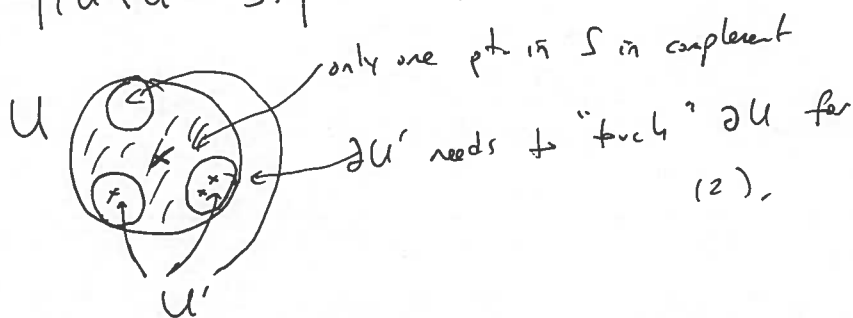 only one pt in S in complement
U
∂U' needs to "touch" ∂U for
(2).
U'